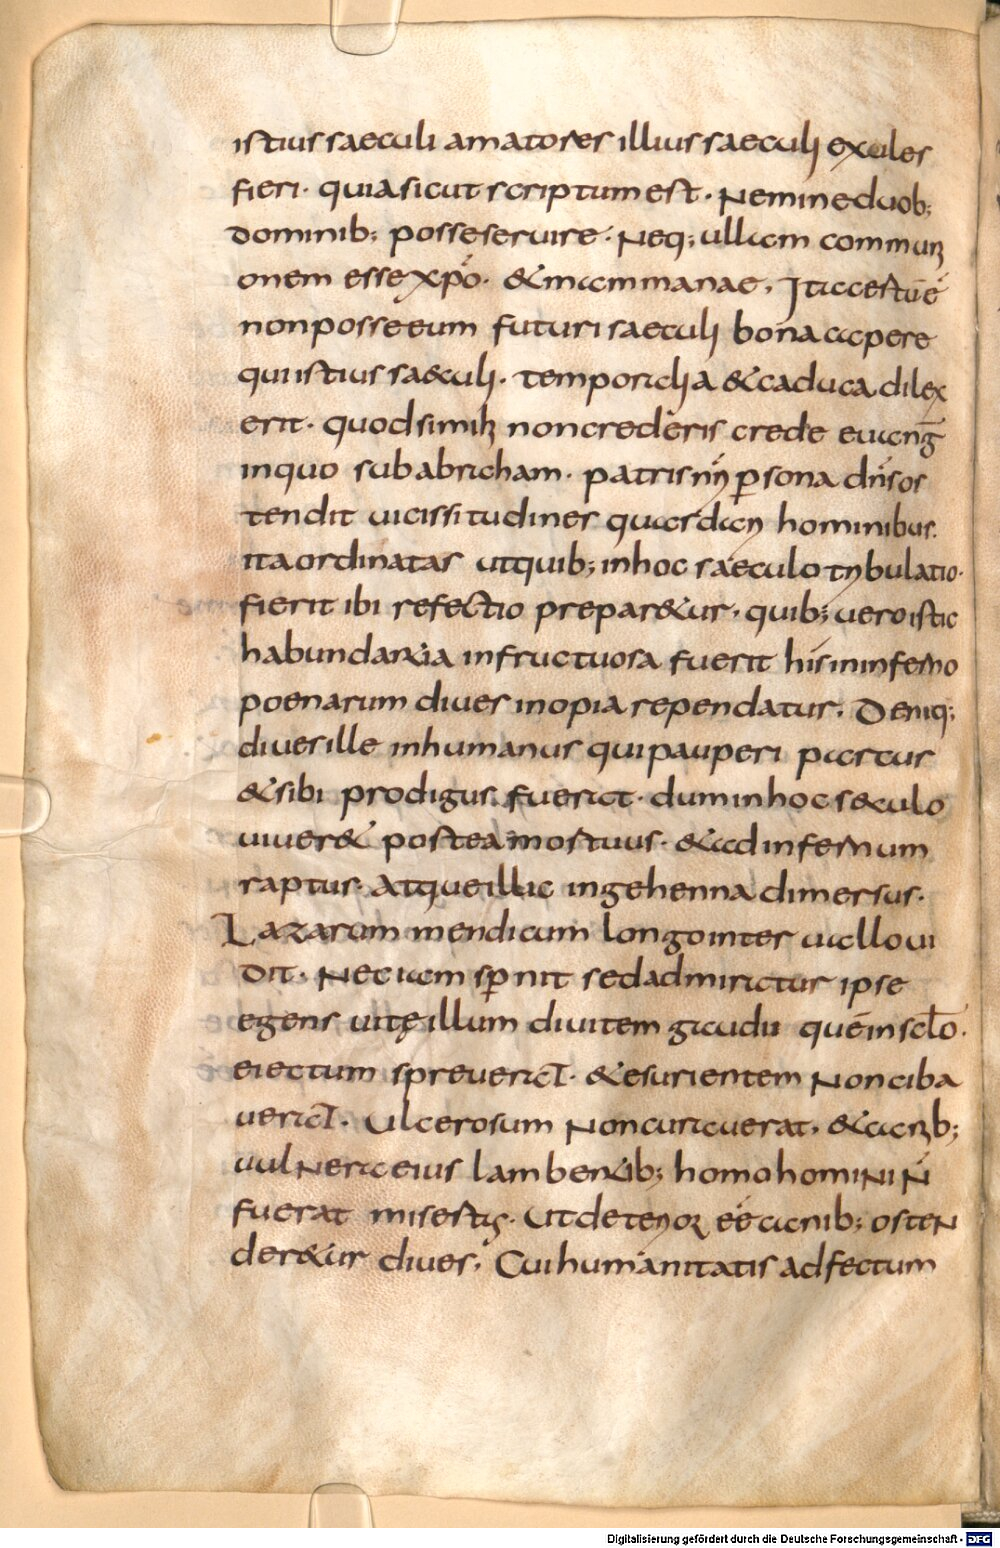 istius saeculi amatores illius saeculi exules
fieri · quia sicut scriptum est · Nemine duob;
dominib; posse seruire · Neq; ullam
onem esse xp̄o · & mammanae · Ita certūē
non posse eum futuri saeculi bona accipere
qui istius sæculi · temporalia & caduca dilex
erit · quod si mihi non crederis crede euanḡ
in quo sub abraham · patris persona dn̄s os
tendit uicissitudines quasdam hominibus ·
ita ordinatas ut quib; in hoc saeculo tribulatio ·
fierit ibi refectio prepar&ur · quib; uero istic
habundantia infructuosa fuerit his in inferno
poenarum diues inopia rependatur · Deniq;
diues ille inhumanus qui pauperi partus
& sibi prodigus fuerat · dum in hoc sęculo
uiuer& postea mortuus · & ad infernum
raptus · Atque illuc in gehenna dimersus ·
Lazarum mendicum longo interuallo ui
dit · Nec iam sp̄nit sed admiratur ipse
egens uitę illum diuitem gaudii quē in sclō ·
eiectum spreuerat · & esurientem Non ciba
uerat · Ulcerosum Non curauerat · &
uulNera eius lambentib; homo homiNi N̄
fuerat · Ut deterior eē canib; osteN
der&ur diues · Cui humanitatis adfectum
Digitalisierung gefördert durch die Deutsche Forschungsgemeinschaft - DFG